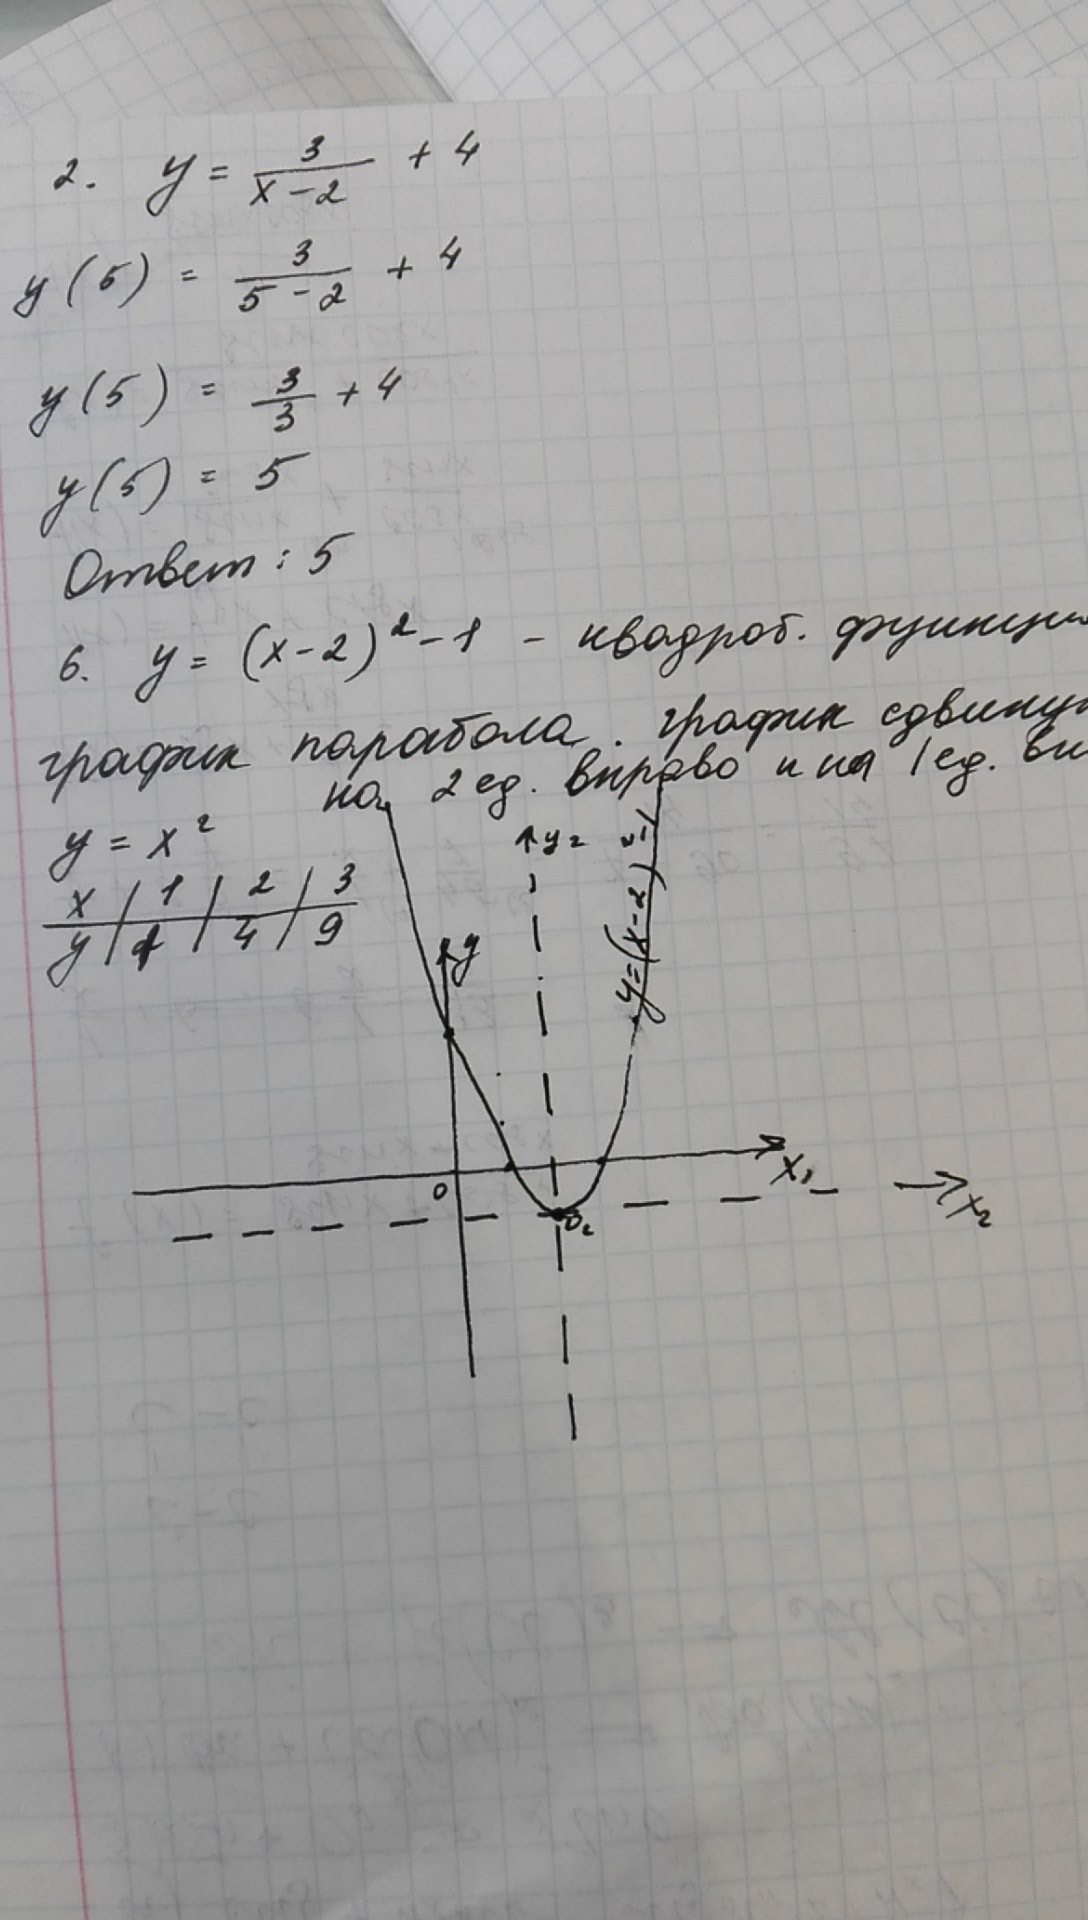 2. y = 3/(x-2) + 4
y(5) = 3/(5-2) + 4
y(5) = 3/3 + 4
y(5) = 5
Ответ: 5
6. y = (x-2)² - 1 - квадрат. функция
график парабола. график сдвинут
на 2 ед. вправо и на 1 ед. вн
y = x²
x | 1 | 2 | 3
y | 1 | 4 | 9
y₂
y
y=(x-2)²-1
0
x₁
O₂
x₂